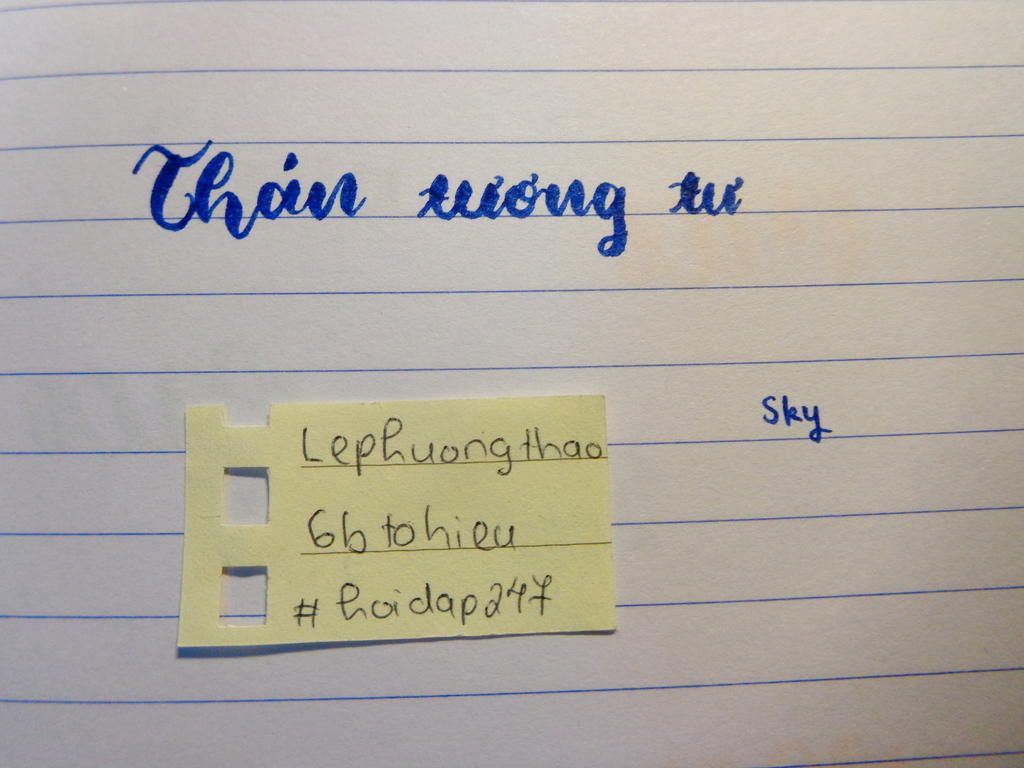 Thán tương tư
Sky
Lephuongthao
6b tohieu
# hoidap247